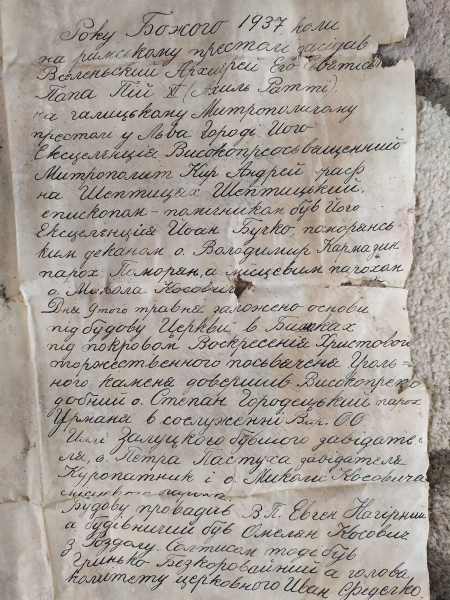 Року Божого 1937 коли
на римскому престолі засідав
Вселеньский Архиєрей Его Святість
Папа Пій XI (Ахиль Ратті)
на галицькому Митрополичому
престолі у Льва Городі Його
Ексцеленція Високопреосьвященний
Митрополит Кир Андрей граф
на Шептицях Шептицький,
епископам-помічником був Його
Ексцеленція Йоан Бучко поморянсь
ким деканом о. Володимир Кармазин
парох Поморян, а місцевим парохом
о. Микола Косович
Дня 9того травня заложено основи
під будову Церкви в
під покровом Воскресенія Христового
торжественного посьвячена Уголь=
ного каменя довершив Високопрепо
добний о. Степан Городецький парох
Урмана в сослуженні Впр. ОО.
Іллі Залуцкого бувшого завідате
ля, о. Петра Пастуха завідателя
Куропатник і о. Миколи Косовича
місцевого пароха.
Будову провадив В.П. Евген Нагірний
а будівничий був Омелян Косович
з Роздолу. Солтисом тоді був
Гринько Безкоровайний а голова
комітету церковного Иван